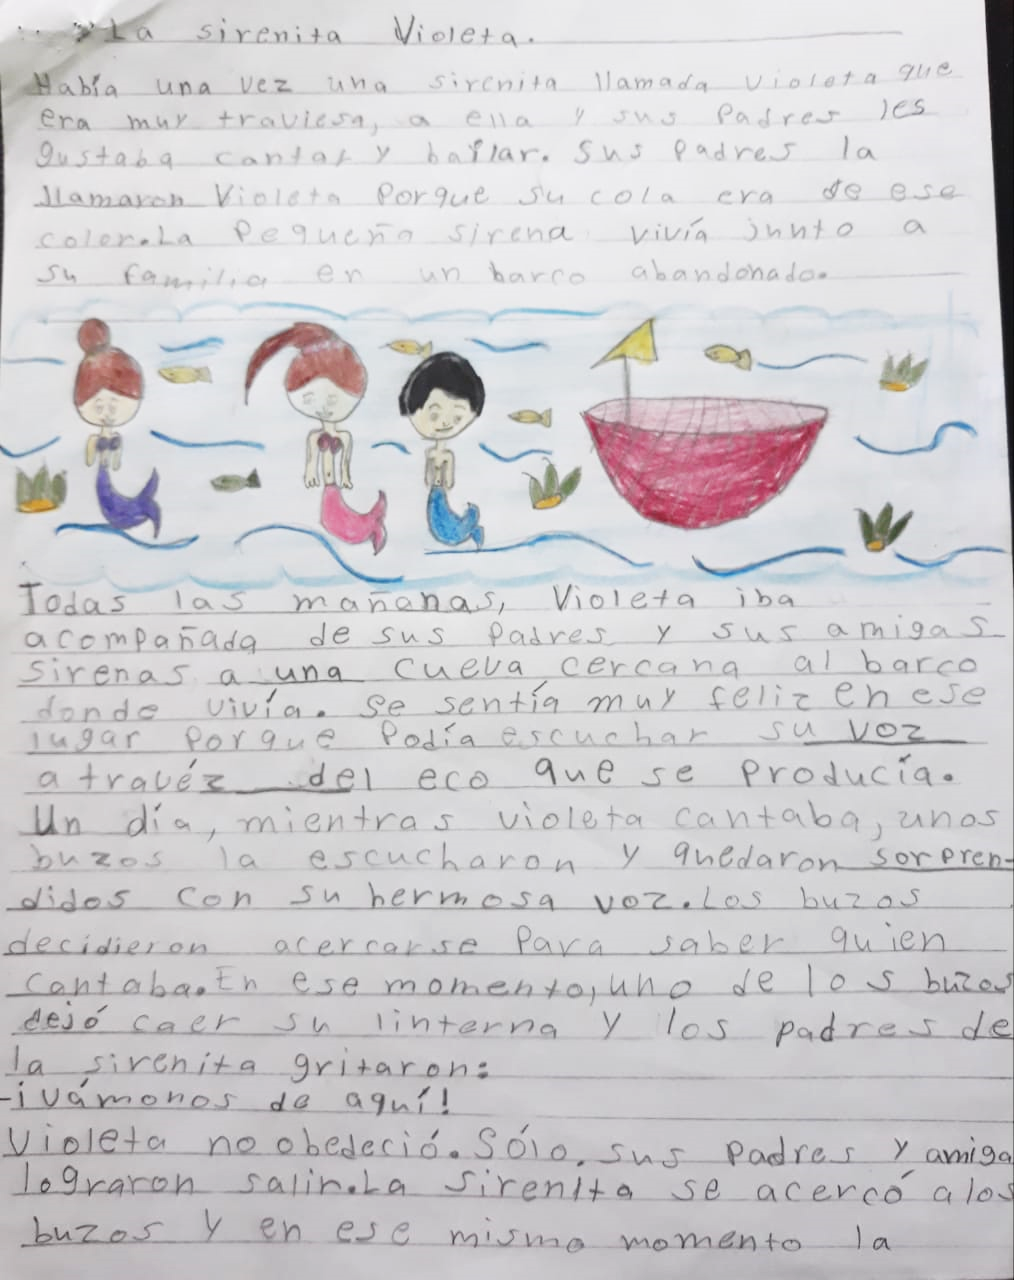 La sirenita Violeta.
Había una vez una sirenita llamada Violeta que
era muy traviesa, a ella y sus Padres les
gustaba cantar y bailar. Sus Padres la
llamaron Violeta Porque su cola era de ese
color.La Pequeña sirena vivía junto a
su familia en un barco abandonado.
Todas las mañanas, Violeta iba
acompañada de sus Padres y sus amigas
sirenas a una cueva cercana al barco
donde vivía. Se sentía muy feliz en ese
lugar Porque Podía escuchar su voz
a travéz del eco que se Producía.
Un día, mientras violeta cantaba, unos
buzos la escucharon y quedaron sorpren-
didos con su hermosa voz.Los buzos
decidieron acercarse Para saber quien
cantaba.En ese momento, uno de los buzos
dejó caer su linterna y los padres de
la sirenita gritaron:
-¡vámonos de aquí!
Violeta no obedeció. Sólo, sus Padres y amiga
lograron salir.La Sirenita se acercó a los
buzos y en ese mismo momento la